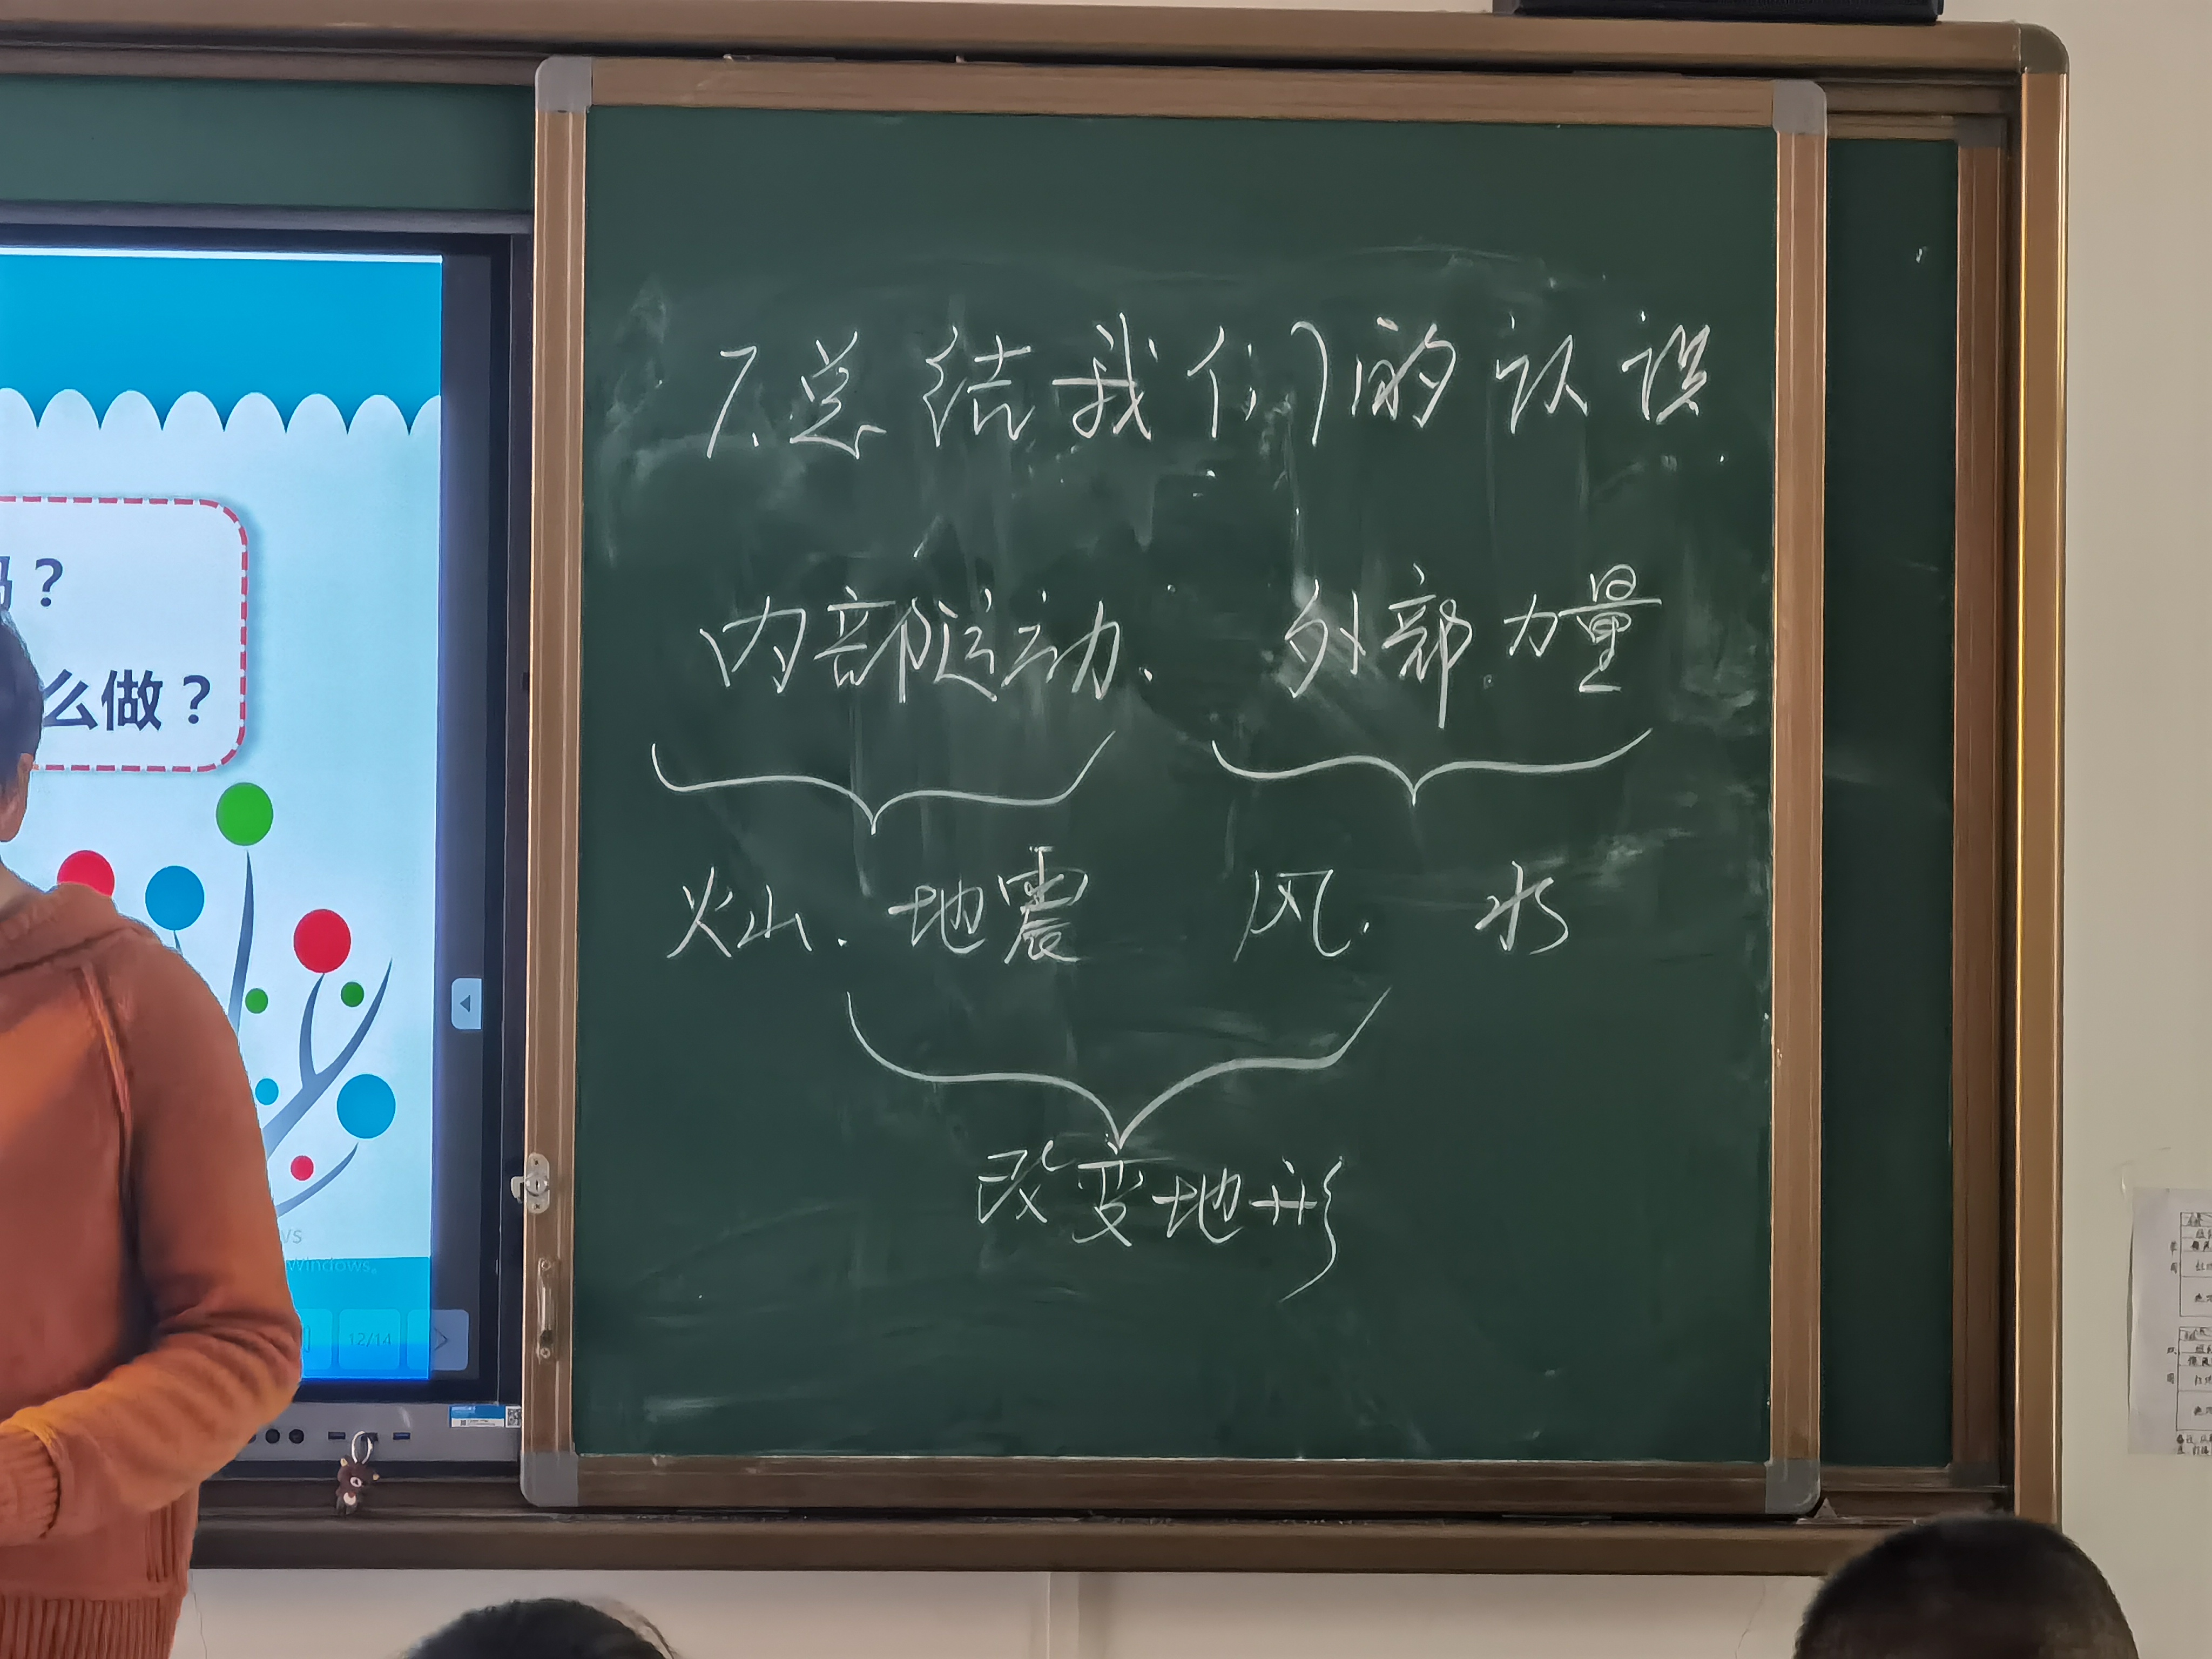 吗？
么做？
vs
Windows。
12/14
7.总结我们的认识
内部运动、 外部力量
火山、地震 风、 水
改变地形